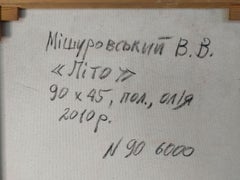 Мішуровський В.В.
«Літо»
90 х 45, пол., олія
2010р.
N 90 6000